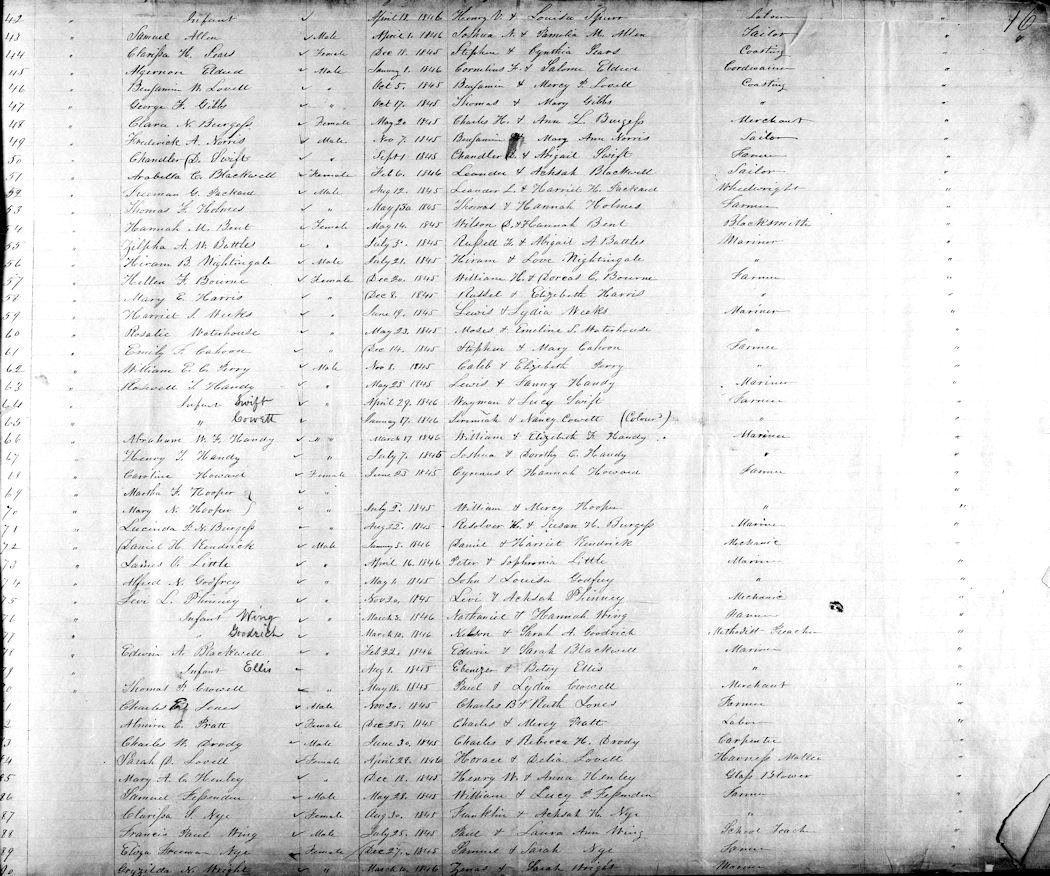 16
42 " Infant ✓ April 18. 1846 Henry V. & Louisa Spurr "
43 " Samuel Allen ✓ Male April 1. 1846 Joshua N. & Pamelia M. Allen Sailor "
44 " Clarissa H. Sears ✓ Female Dec 18. 1845 Stephen & Cynthia Sears Coasting "
45 " Algernon Eldred ✓ Male January 1. 1846 Cornelius F. & Salome Cordwainer "
46 " Benjamin W. Lovell ✓ " Oct 5. 1845 Benjamin & Mercy P. Lovell Coasting "
47 " George F. Gibbs ✓ " Oct 17. 1845 Thomas & Mary Gibbs " "
48 " Clara N. Burgess ✓ Female May 20 1845 Charles H. & Ann L. Burgess Merchant "
49 " Frederick A. Norris ✓ Male Nov 7. 1845 Benjamin Mary Ann Norris Sailor "
50 " Chandler D. Swift ✓ " Sept 1 1845 Chandler & Abigail Swift Farmer "
51 " Arabella C. Blackwell ✓ Female Feb 6. 1846 Leander & Achsah Blackwell Sailor "
52 " Freeman G. Packard ✓ Male Aug 12. 1845 Leander L. & Harriet H. Packard Wheelwright "
53 " Thomas F. Holmes ✓ " May 1845 Thomas & Hannah Holmes Farmer "
4 " Hannah M. Bent ✓ Female May 14. 1845 Wilson & Hannah Bent Blacksmith "
55 " Zilpha A. W. Battles ✓ " July 3. 1845 Russell & Abigail A Battles Mariner "
56 " Hiram B. Nightingale ✓ Male July 21. 1845 Hiram & Love Nightingale " "
57 " Hellen F. Bourne ✓ Female Dec 20. 1845 William H. & Dorcas C. Bourne Farmer "
58 " Mary E. Harris ✓ " Dec 8. 1845 Russel & Elizabeth Harris " "
59 " Harriet S. Weeks ✓ " June 19. 1845 Lewis & Lydia Weeks Mariner "
60 " Rosalie Waterhouse ✓ " May 23. 1845 Moses & Emeline S. Waterhouse " "
61 " Emily F. Cahoon ✓ " Dec 14. 1845 Stephen & Mary Cahoon Farmer "
62 " William E. C. Perry ✓ Male Nov 8. 1845 Caleb & Elizabeth Perry " "
63 " Handy ✓ " May 23 1845 Lewis & Fanny Handy Mariner "
64 " Infant Swift ✓ " April 29. 1846 Wayman & Lucy Swift Farmer "
65 " " Cowett ✓ January 17. 1846 Jeremiah & Nancy Cowett (Colourd) " "
66 " Abraham W. F. Handy ✓ " " March 17 1846 William & Elizabeth F. Handy. Mariner "
67 " Henry T. Handy ✓ " July 7. 1845 Joshua & Dorothy C. Handy " "
68 " Caroline Howard ✓ Female June 23 1845 Cyrenus & Hannah Howard Farmer "
69 " Martha F. Hooper } ✓ " "
70 " Mary N. Hooper } ✓ " July 2. 1845 William & Mercy Hooper " "
71 " Lucinda P. N. Burgess ✓ " Aug 22. 1845 Resolved H. & Susan H. Burgess Mariner "
72 " Daniel H. Kendrick ✓ Male January 5. 1846 Daniel & Harriet Kendrick Mechanic "
73 " James A. Little ✓ " April 16. 1846 Peter & Sophronia Little Mariner "
74 " Alfred N. Godfrey ✓ " May 1. 1845 John & Louisa Godfrey " "
75 " Levi L. Phinney ✓ " Nov 20. 1845 Levi & Achsah Phinney Mechanic "
76 " Infant Wing ✓ " March 3. 1846 Nathaniel & Hannah Wing Farmer "
77 " " Goodrich ✓ " March 10. 1846 Nelson & Sarah A. Goodrich Methodist Preacher "
78 " Edwin A. Blackwell ✓ " Feb 22. 1846 Edwin & Sarah Blackwell Mariner "
79 " Infant Ellis Aug 1. 1845 Ebenezer & Betsy Ellis " "
80 " Thomas P. Crowell ✓ " May 18. 1845 Paul & Lydia Crowell Merchant "
1 " Charles Jones ✓ Male Nov 20. 1845 Charles B & Ruth Jones Farmer "
2 " Almira C. Pratt ✓ Female Dec 25. 1845 Charles & Mercy Pratt Labor "
3 " Charles W. Brody ✓ Male June 30. 1845 Charles & Rebecca H. Brody Carpenter "
84 " Sarah D. Lovell ✓ Female April 28. 1846 Horace & Delia Lovell Harness Maker "
85 " Mary A. C. Henley ✓ " Dec 18. 1845 Henry W. & Anna Henley Glass Blower "
86 " Samuel Fessenden ✓ Male May 28. 1845 William & Lucy P. Fessenden Farmer "
87 " Clarissa S. Nye ✓ Female Aug 30. 1845 Franklin & Achsah H. Nye " "
88 " Francis Paul Wing ✓ Male July 25. 1845 Paul & Laura Ann Wing School Teach "
89 " Eliza Freeman Nye ✓ Female Dec 27. 1845 Samuel & Sarah Nye Farmer "
90 " N. Wright ✓ " March 1846 Zenas & Sarah Wright Mariner "